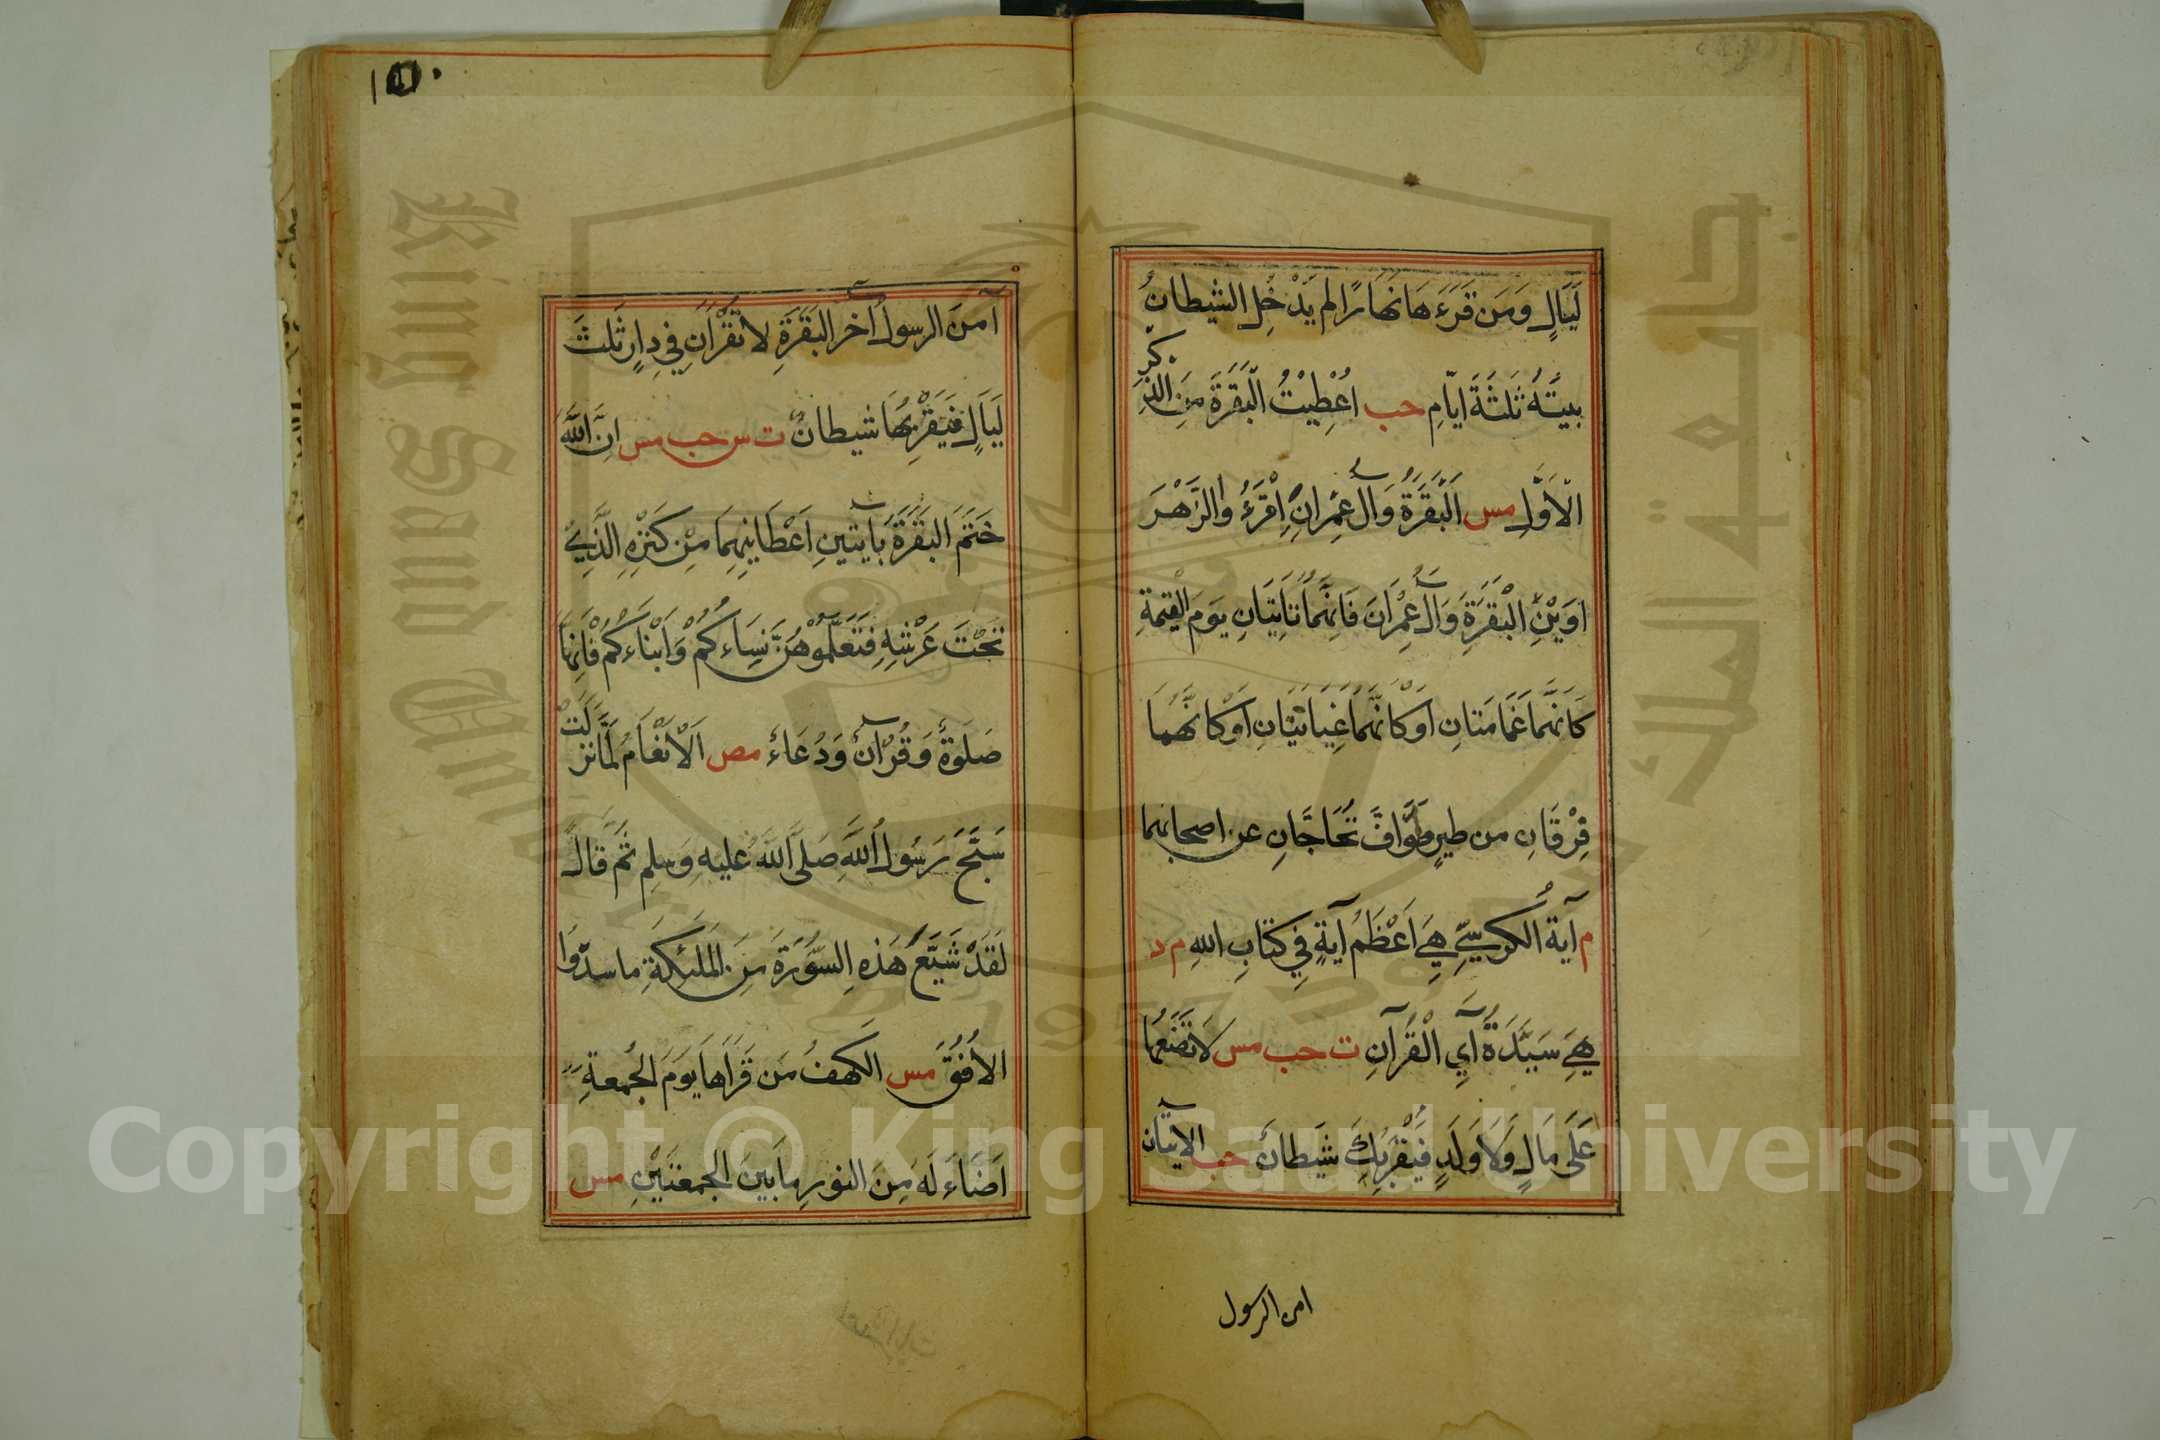 لَيَالٍ وَمَن قَرَءَهَا نَهَارًا لم يَدْخُلِ الشيطانُ
بيتَهُ ثَلثَةَ ايّامٍ حب اُعْطِيْتُ الْبَقَرَةَ مِنَ الذِكْرِ
الْاَوَّلِ مس اَلْبَقَرَةُ وَآلُ عِمْرانِ اِقْرَءُ والزَهْرَ
اوَيْنِ الْبَقَرَةَ وَآلَ عِمْرَانَ فَاِنَّهُمَا تَأتِيَانِ يَومَ الْقِيمَةِ
كَاَنَّهما غَمَامَتانِ اَوكَاَنَّهُمَا غِيَايَتَانِ اَوْكَانَّهُمَا
فِرْقَانِ من طيرٍ صَوَّافَّ تُحَاجَّانِ عن اصحابهما
م آيةُ الْكُرسِيّ هِيَ اَعْظَمُ آيَةٍ فِي كِتَابِ اللهِ م د
هِيَ سَيِّدَةُ آيِ الْقُرآنِ ت حب مس لَا تَضَعُهَا
عَلَى مَالٍ وَلَا وَلَدٍ فَيَقْرَبُكَ شَيطانٌ حب الآيتان
امن الرسول
آمَنَ الرسولُ آخر البَقَرَةِ لا تُقْرَآنِ فِي دارٍ ثَلثَ
لَيَالٍ فَيَقْرَبُهَا شيطانٌ ت س حب مس اِنَّ اللهَ
خَتَمَ البَقَرَةَ بِآيَتَينِ اَعْطَانِيهِمَا مِنْ كَنْزِهِ الَّذِي
تَحْتَ عَرْشِهِ فَتَعَلَّمُوْهُنَّ نِسَاءكُمْ وَاَبْنَاءكُمْ فَاِنَّهَا
صَلَوةٌ وَقُرْآنٌ وَدُعَاءٌ مص اَلْاَنْعَامُ لَمَّا نَزَلَتْ
سَبَّحَ رَسُولُ اللهِ صَلَى اللهُ عليه وَسلم ثُمَّ قَالَ
لَقَدْ شَيَّعَ هَذِهِ السُّوْرَةَ مِنَ المَلئِكَةِ ما سدُّوا
الاُفُقَ مس الكَهفُ مَن قَرَاَها يَومَ الجُمعةِ
اَضَاءَ لَهُ مِنَ النورِ مابَينَ الجمعتَيْنِ مس
Copyright © King Saud University
جامعة الملك سعود
King Saud University
1957